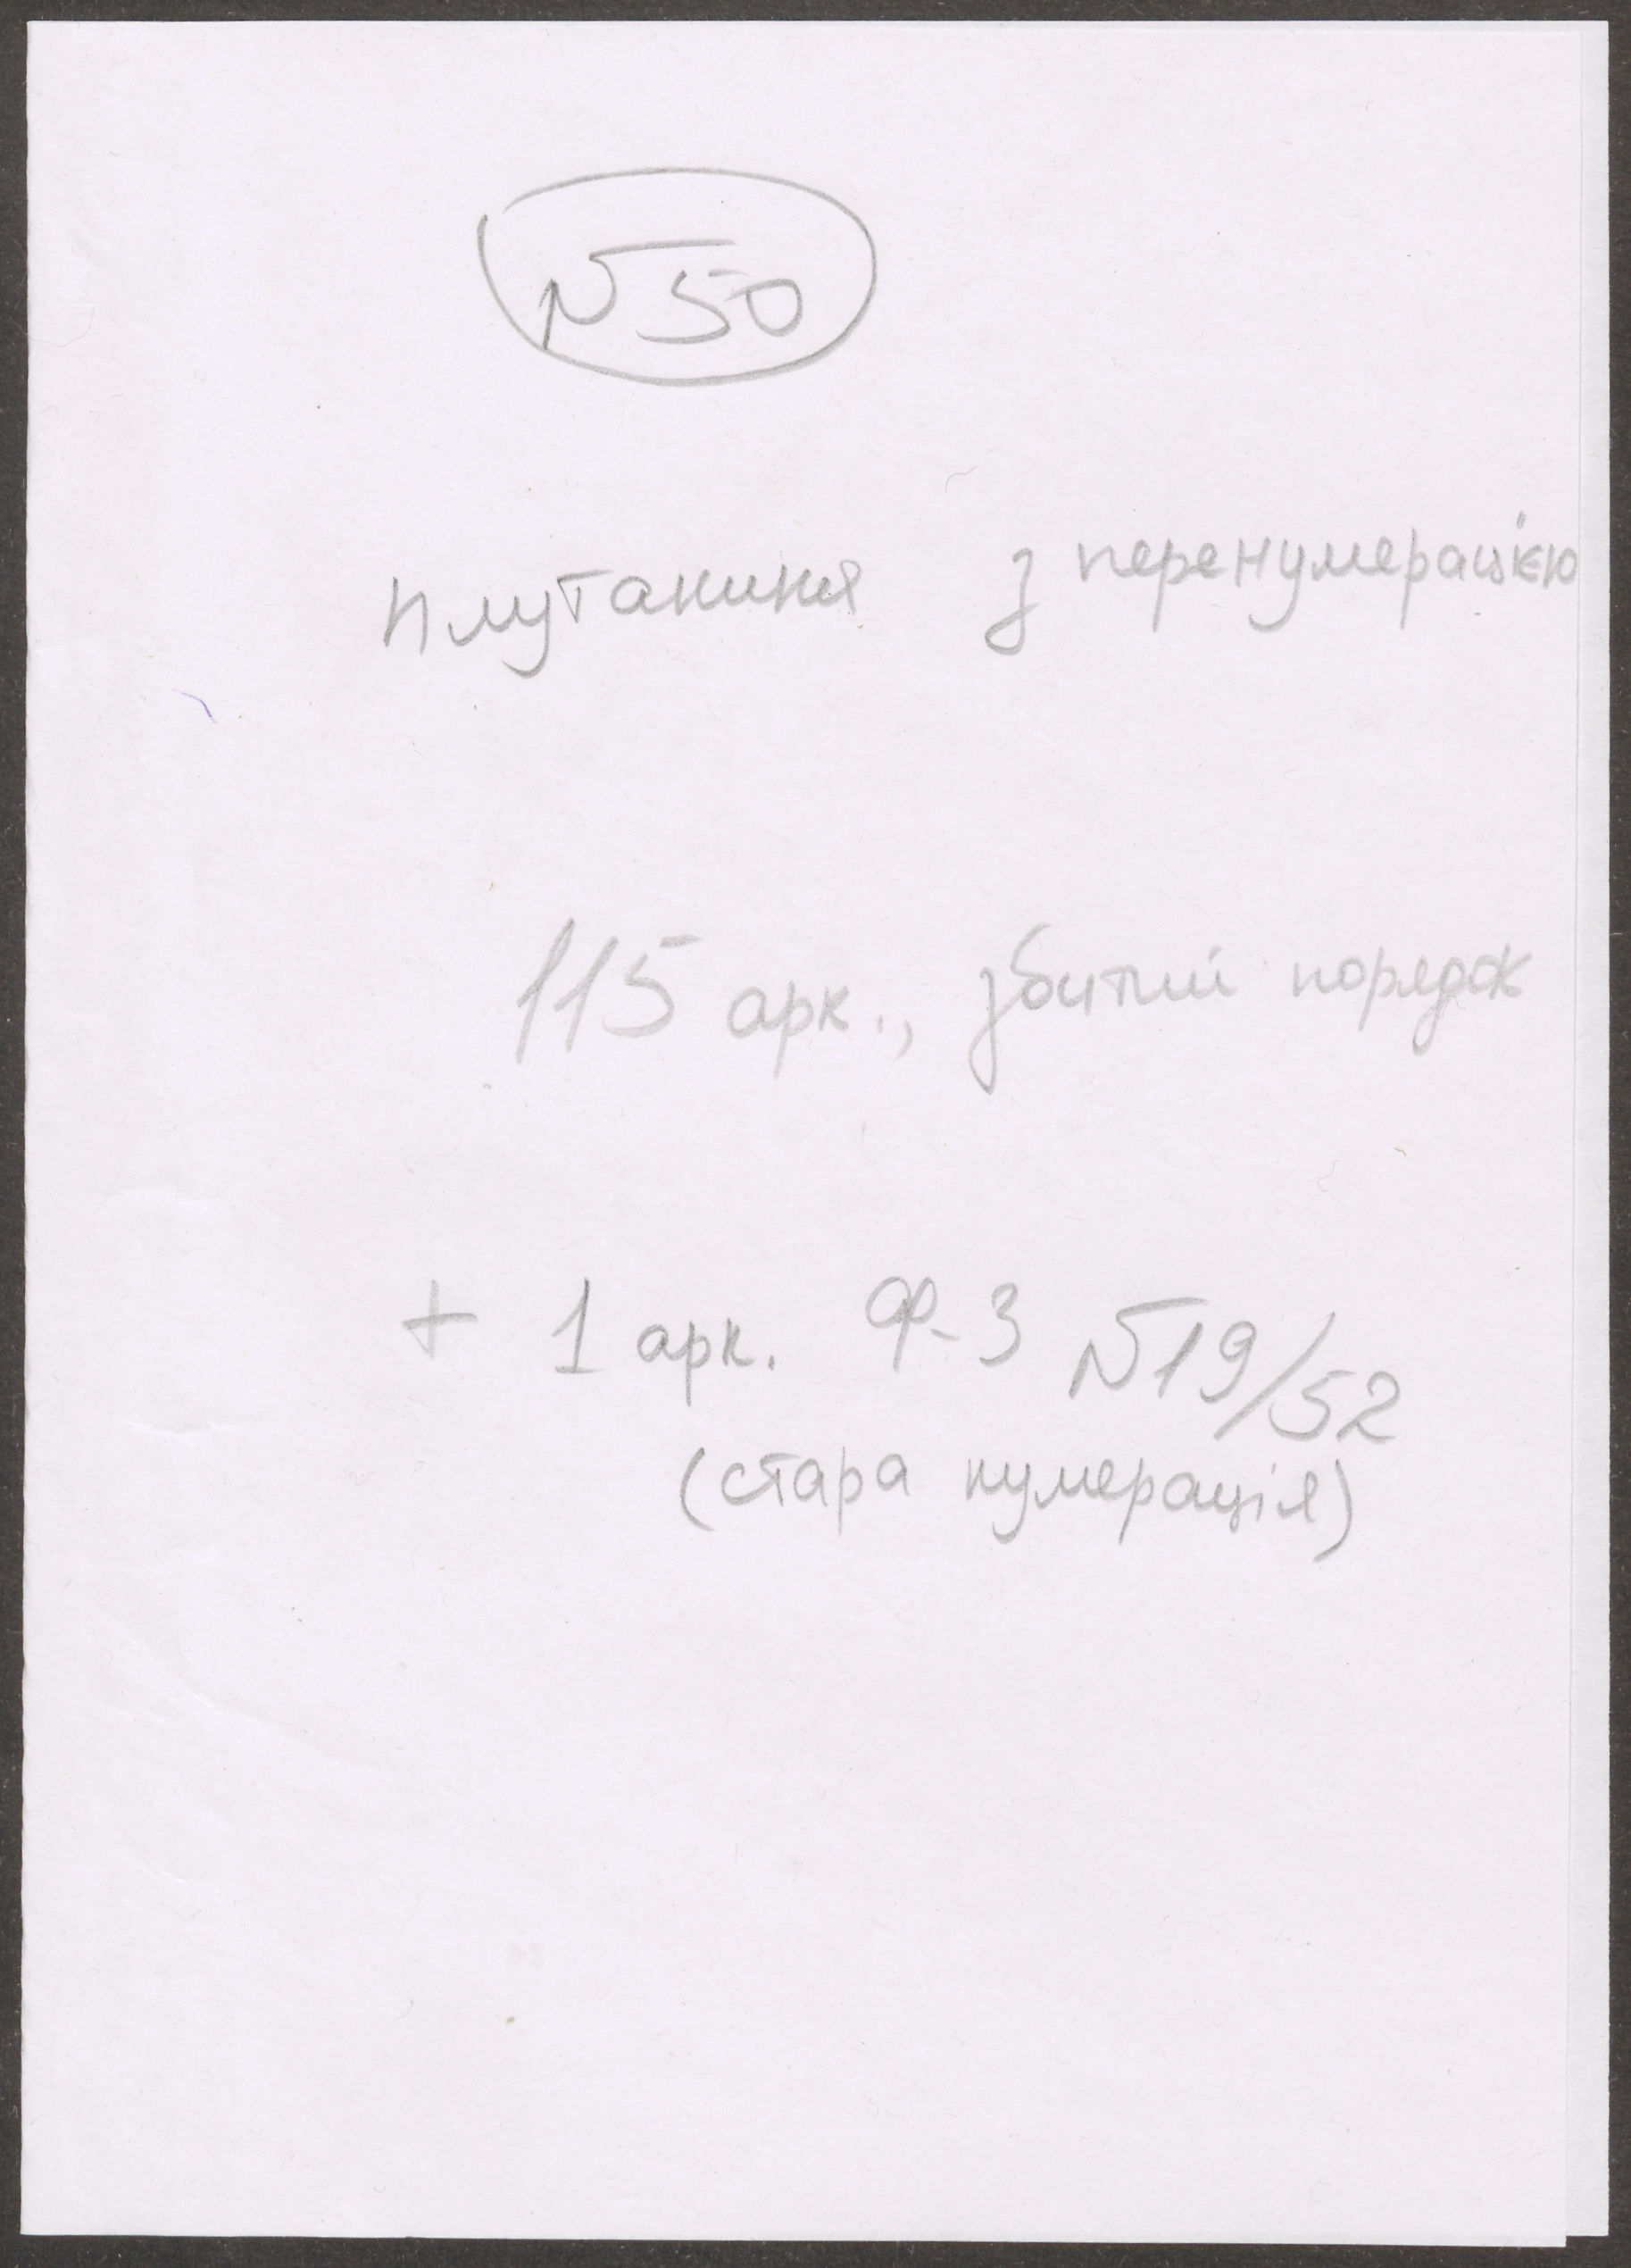 № 50
плутанина з перенумерацією
115 арк., збитий порядок
+ 1 арк. Ф-3 № 19/52
(стара нумерація)